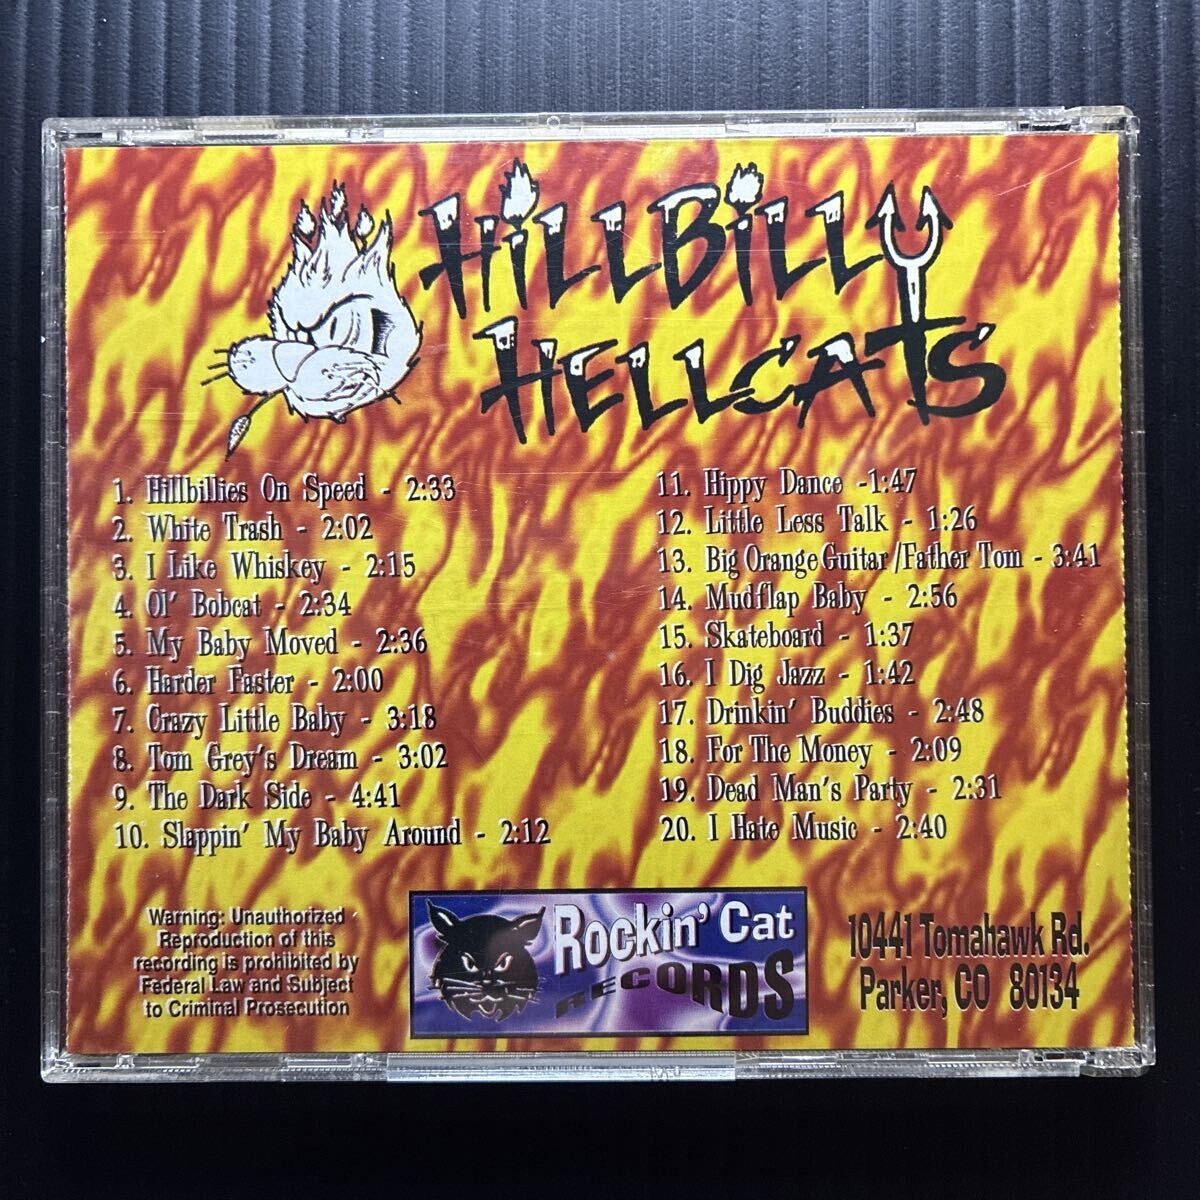 HillBilly
HELLCATS
1. Hillbillies On Speed - 2:33
2. White Trash - 2:02
3. I Like Whiskey - 2:15
4. Ol' Bobcat - 2:34
5. My Baby Moved - 2:36
6. Harder Faster - 2:00
7. Crazy Little Baby - 3:18
8. Tom Grey's Dream - 3:02
9. The Dark Side - 4:41
10. Slappin' My Baby Around - 2:12
11. Hippy Dance -1:47
12. Little Less Talk - 1:26
13. Big Orange Guitar/Father Tom - 3:41
14. Mudflap Baby - 2:56
15. Skateboard - 1:37
16. I Dig Jazz - 1:42
17. Drinkin' Buddies - 2:48
18. For The Money - 2:09
19. Dead Man's Party - 2:31
20. I Hate Music - 2:40
Warning: Unauthorized
Reproduction of this
recording is prohibited by
Federal Law and Subject
to Criminal Prosecution
Rockin' Cat
RECORDS
10441 Tomahawk Rd.
Parker, CO 80134